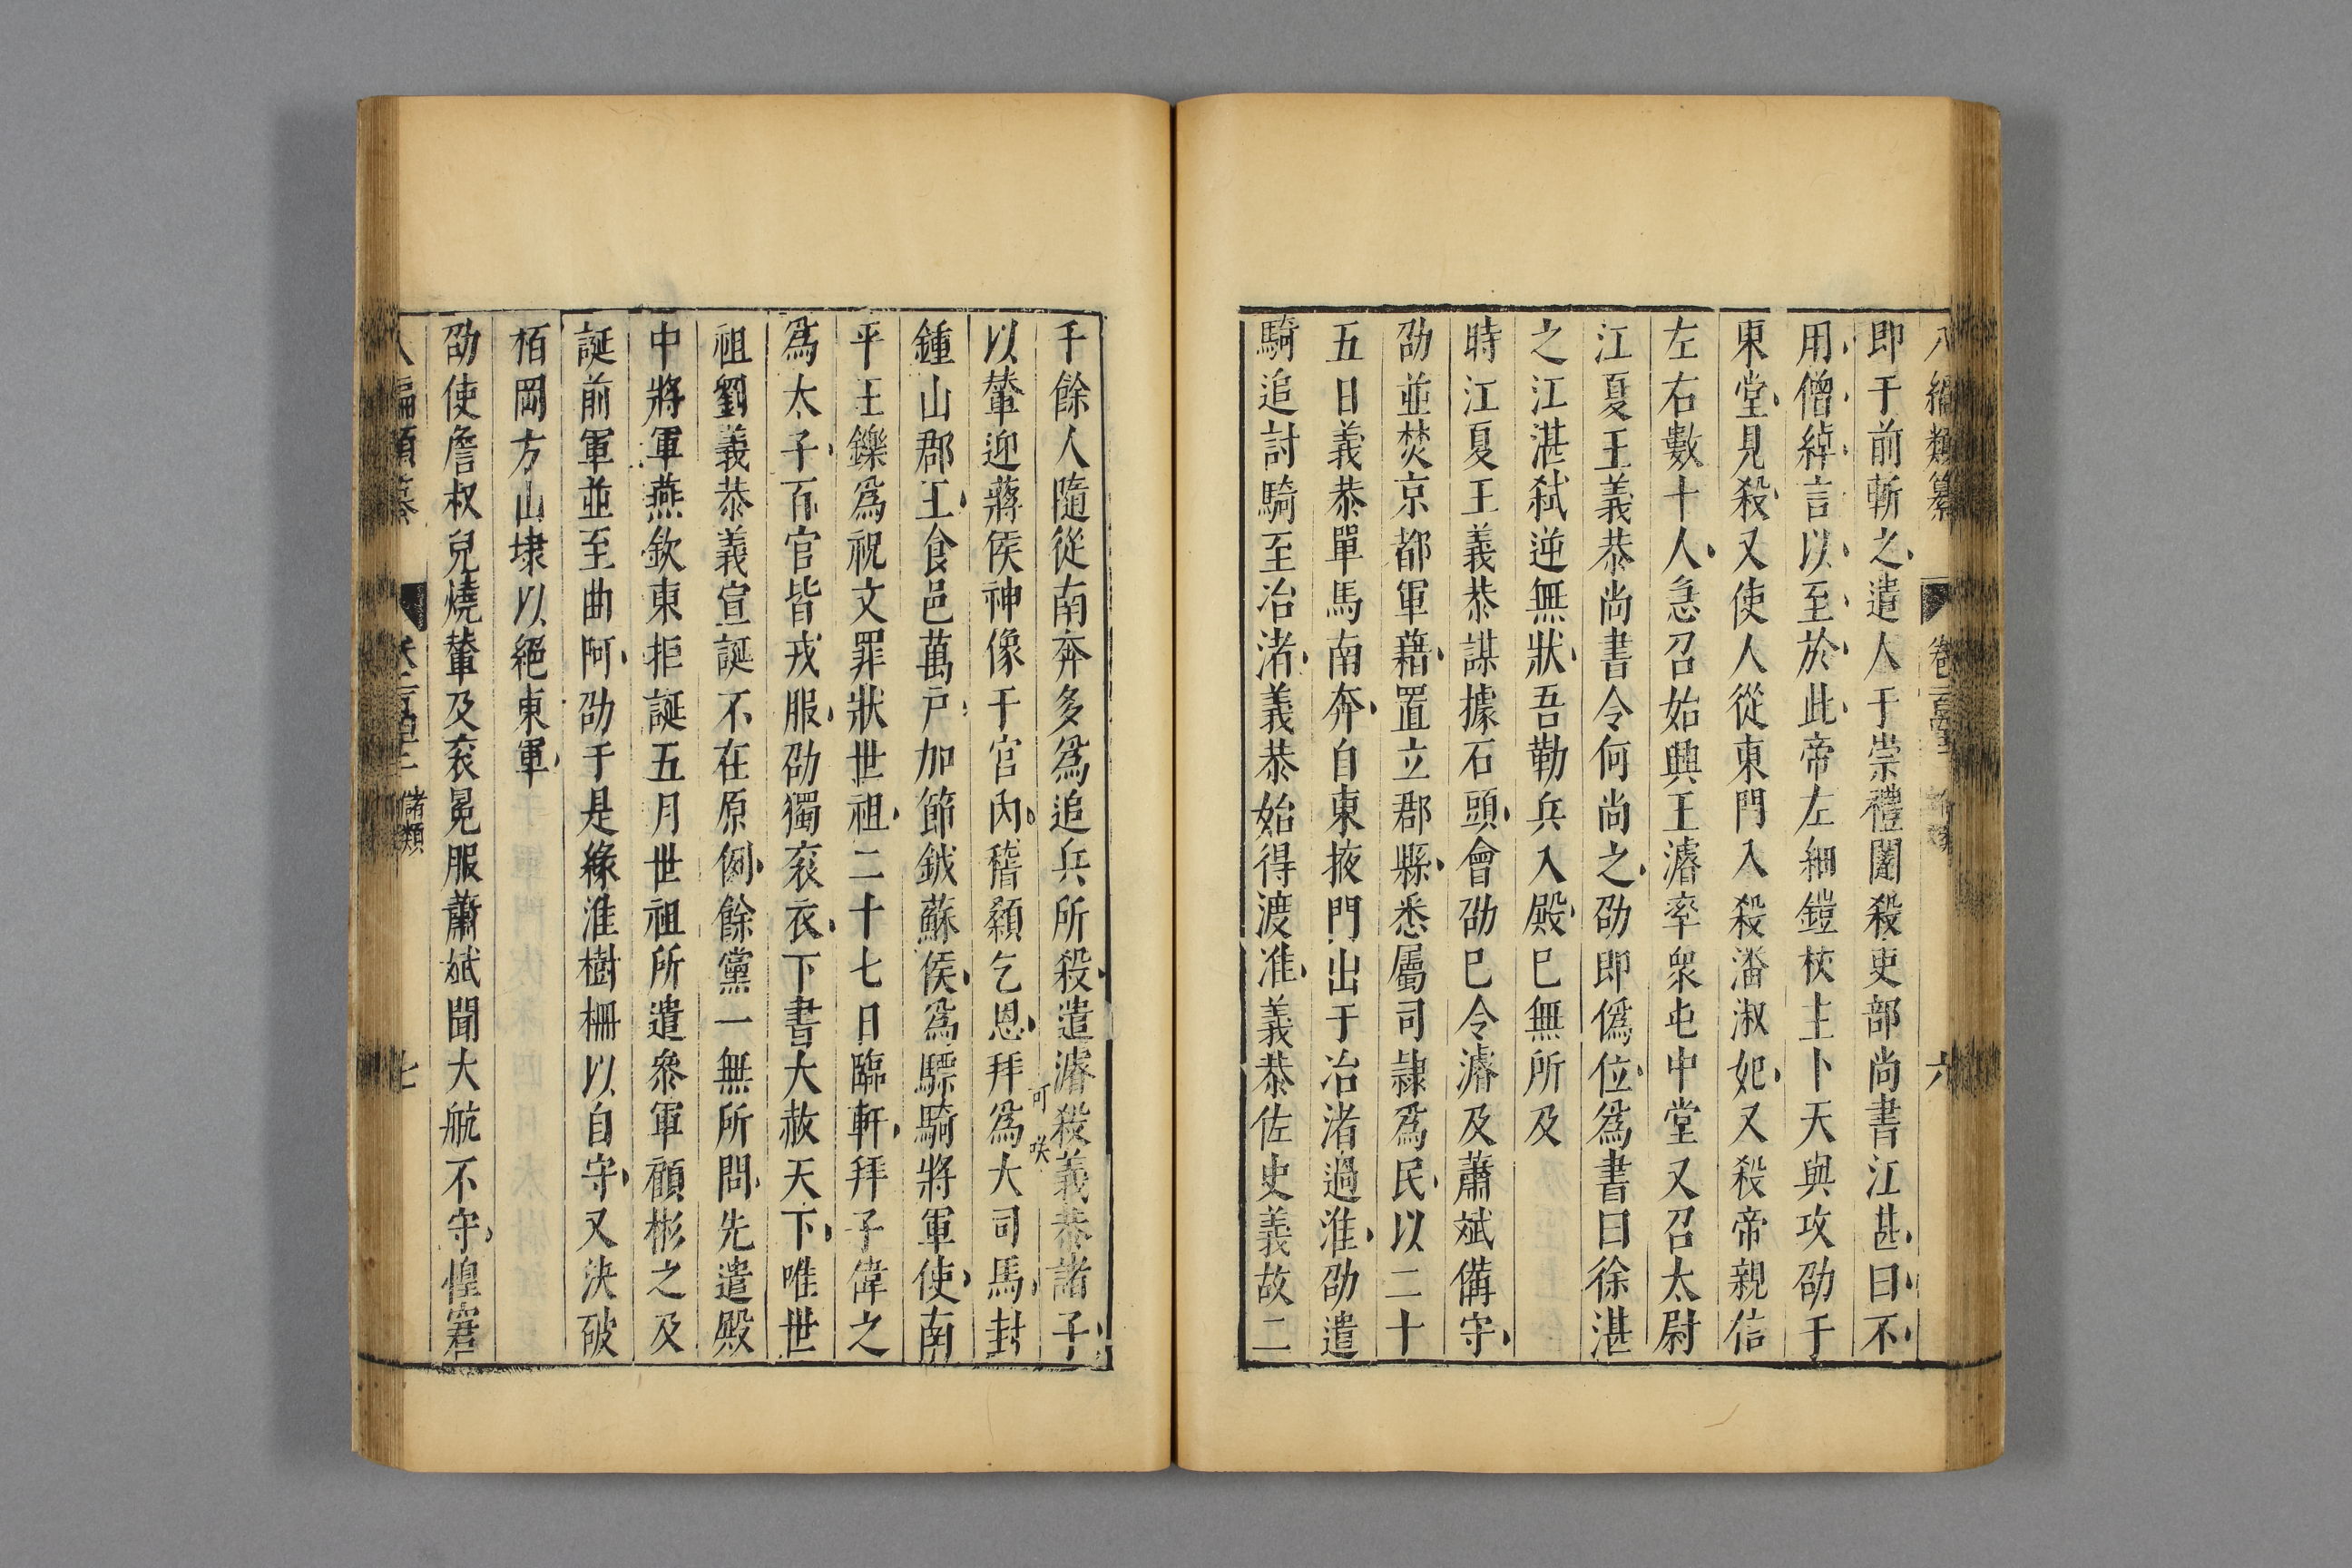 八編類纂 卷二百 六
即于前斬之遣人于崇禮闥殺吏部尚書江甚曰不
用僧綽言以至於此帝左細鎧杖主卜天與攻劭于
東堂見殺又使人從東門入殺潘淑妃又殺帝親信
左右數十人急召始興王濬率衆屯中堂又召太尉
江夏王義恭尚書令何尚之劭即僞位爲書曰徐湛
之江湛弑逆無狀吾勒兵入殿巳無所及
時江夏王義恭謀據石頭會劭巳令濬及蕭斌備守
劭並焚京都軍藉置立郡縣悉屬司隷爲民以二十
五日義恭單馬南奔自東掖門出于冶渚過淮劭遣
騎追討騎至冶渚義恭始得渡淮義恭佐史義故二
千餘人隨從南奔多爲追兵所殺遣濬殺義恭諸子
以輦迎蔣侯神像于宫內稽顙乞恩拜爲大司馬封
可咲
鍾山郡王食邑萬戶加節鉞蘇侯爲驃騎將軍使南
平王鑠爲祝文罪狀世祖二十七日臨軒拜子偉之
爲太子百官皆戎服劭獨衮衣下書大赦天下唯世
祖劉義恭義宣誕不在原例餘黨一無所問先遣殿
中將軍燕欽東拒誕五月世祖所遣參軍顧彬之及
誕前軍並至曲阿劭于是緣淮樹柵以自守又決破
栢岡方山埭以絕東軍
劭使詹叔兒燒輦及衮冕服蕭斌聞大航不守惶窘
八編類纂 儲類 七